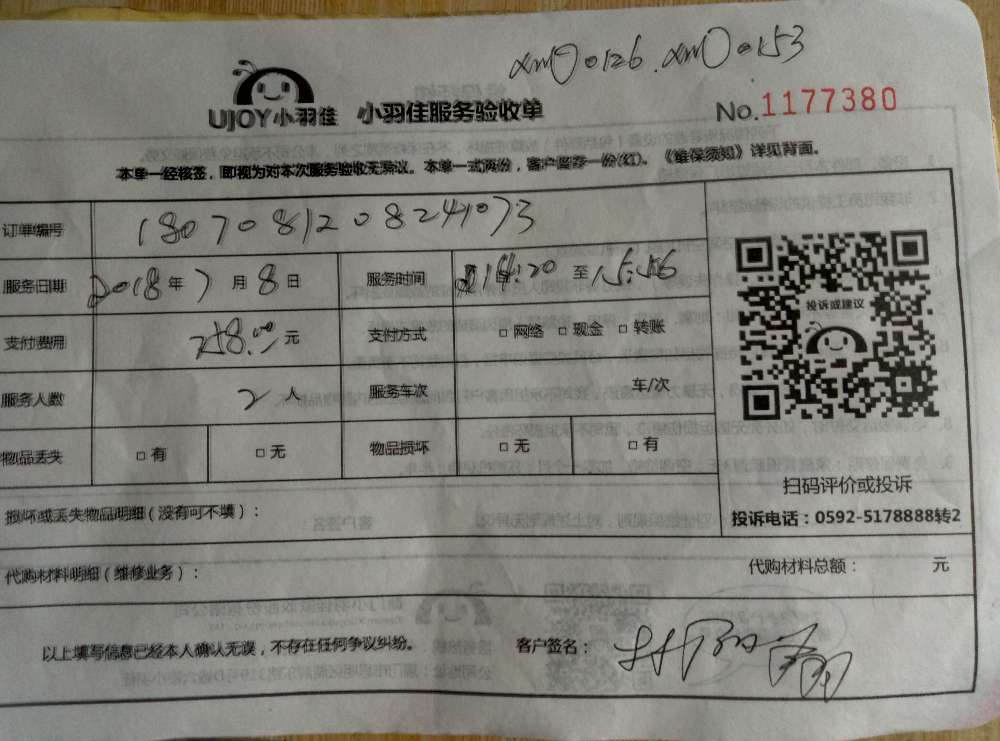 xm00126.xm00153
UJOY小羽佳 小羽佳服务验收单 No.1177380
本单一经核签，即视为对本次服务验收无异议。本单一式两份，客户留存一份(红)。《维保须知》详见背面。
订单编号 1807081208241073
服务日期 2018年7月8日 服务时间 14:20至15:56
支付费用 258.00元 支付方式 □网络 □现金 □转账
投诉或建议
服务人数 2人 服务车次 车/次
物品丢失 □有 □无 物品损坏 □无 □有
扫码评价或投诉
损坏或丢失物品明细(没有可不填)：
投诉电话：0592-5178888转2
代购材料明细(维修业务)： 代购材料总额： 元
以上填写信息已经本人确认无误，不存在任何争议纠纷。 客户签名：